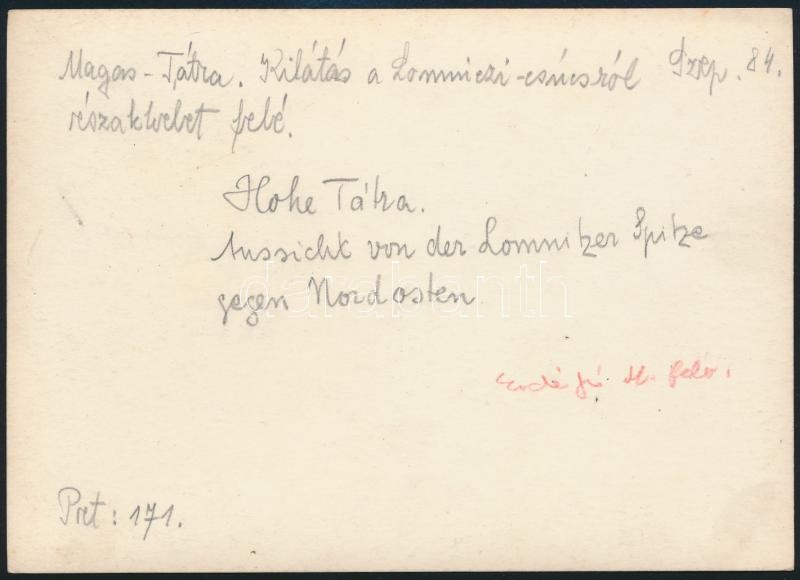 Magas-Tátra. Kilátás a Lomniczi-csúcsról Szep. 84.
északkelet felé.
Hohe Tátra.
Aussicht von der Lomnitzer Spitze
gegen Nordosten
darabanth
M. felv.
Pret: 171.